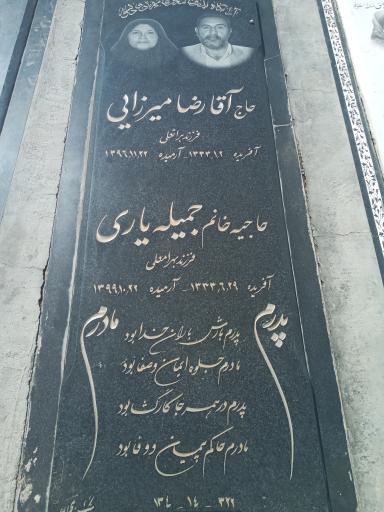 حاج آقا رضا میرزایی
فرزند بهرامعلی
آفریده ۱۳۳۳.۱.۲ آرمیده ۱۳۹۶.۱۱.۲۲
حاجیه خانم جمیله یاری
فرزند بهرامعلی
آفریده ۱۳۳۳.۶.۲۹ - آرمیده ۱۳۹۹.۱۰.۲۲
پدرم مادرم
پدرم بارش باران خدا بود
مادرم جلوه ایمان و صفا بود
پدرم در همه جا کارگشا بود
مادرم حاکم پیمان و وفا بود
۳۲۲ - ۱۴ - ۱۳